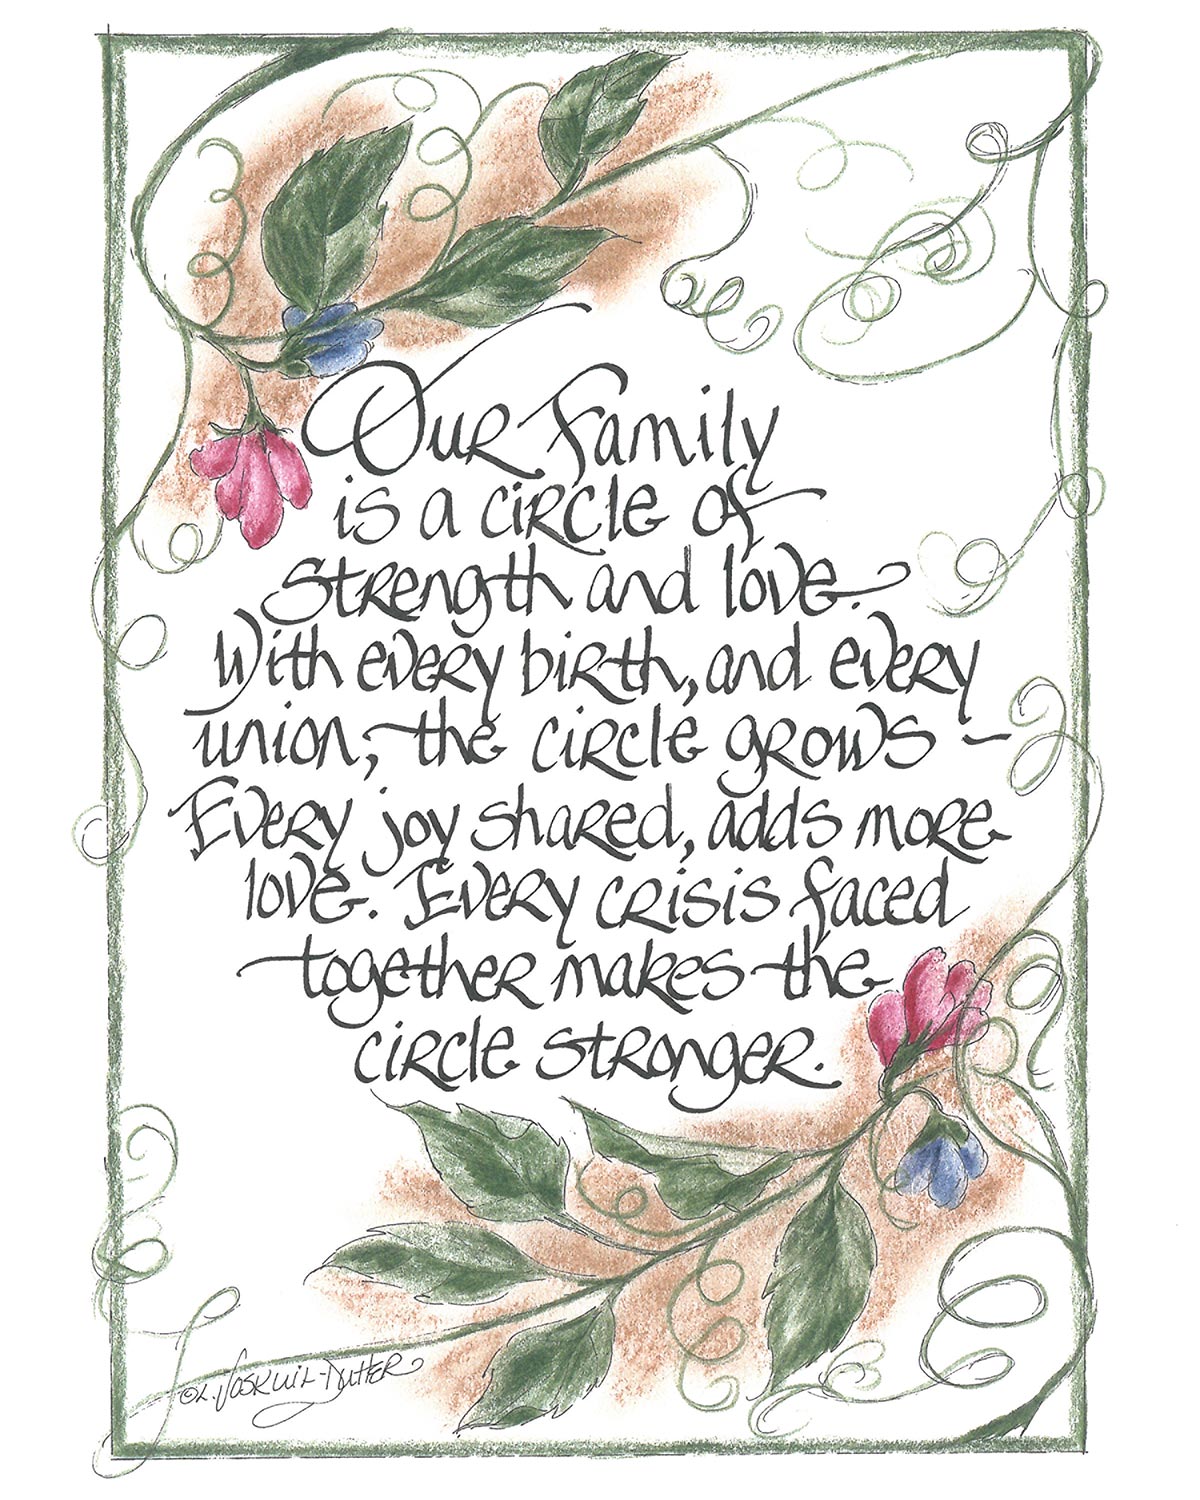 Our Family
is a circle of
strength and love.
With every birth, and every
union, the circle grows –
Every joy shared, adds more
love. Every crisis faced
together makes the
circle stronger.
©L. Voskuil-Dutter